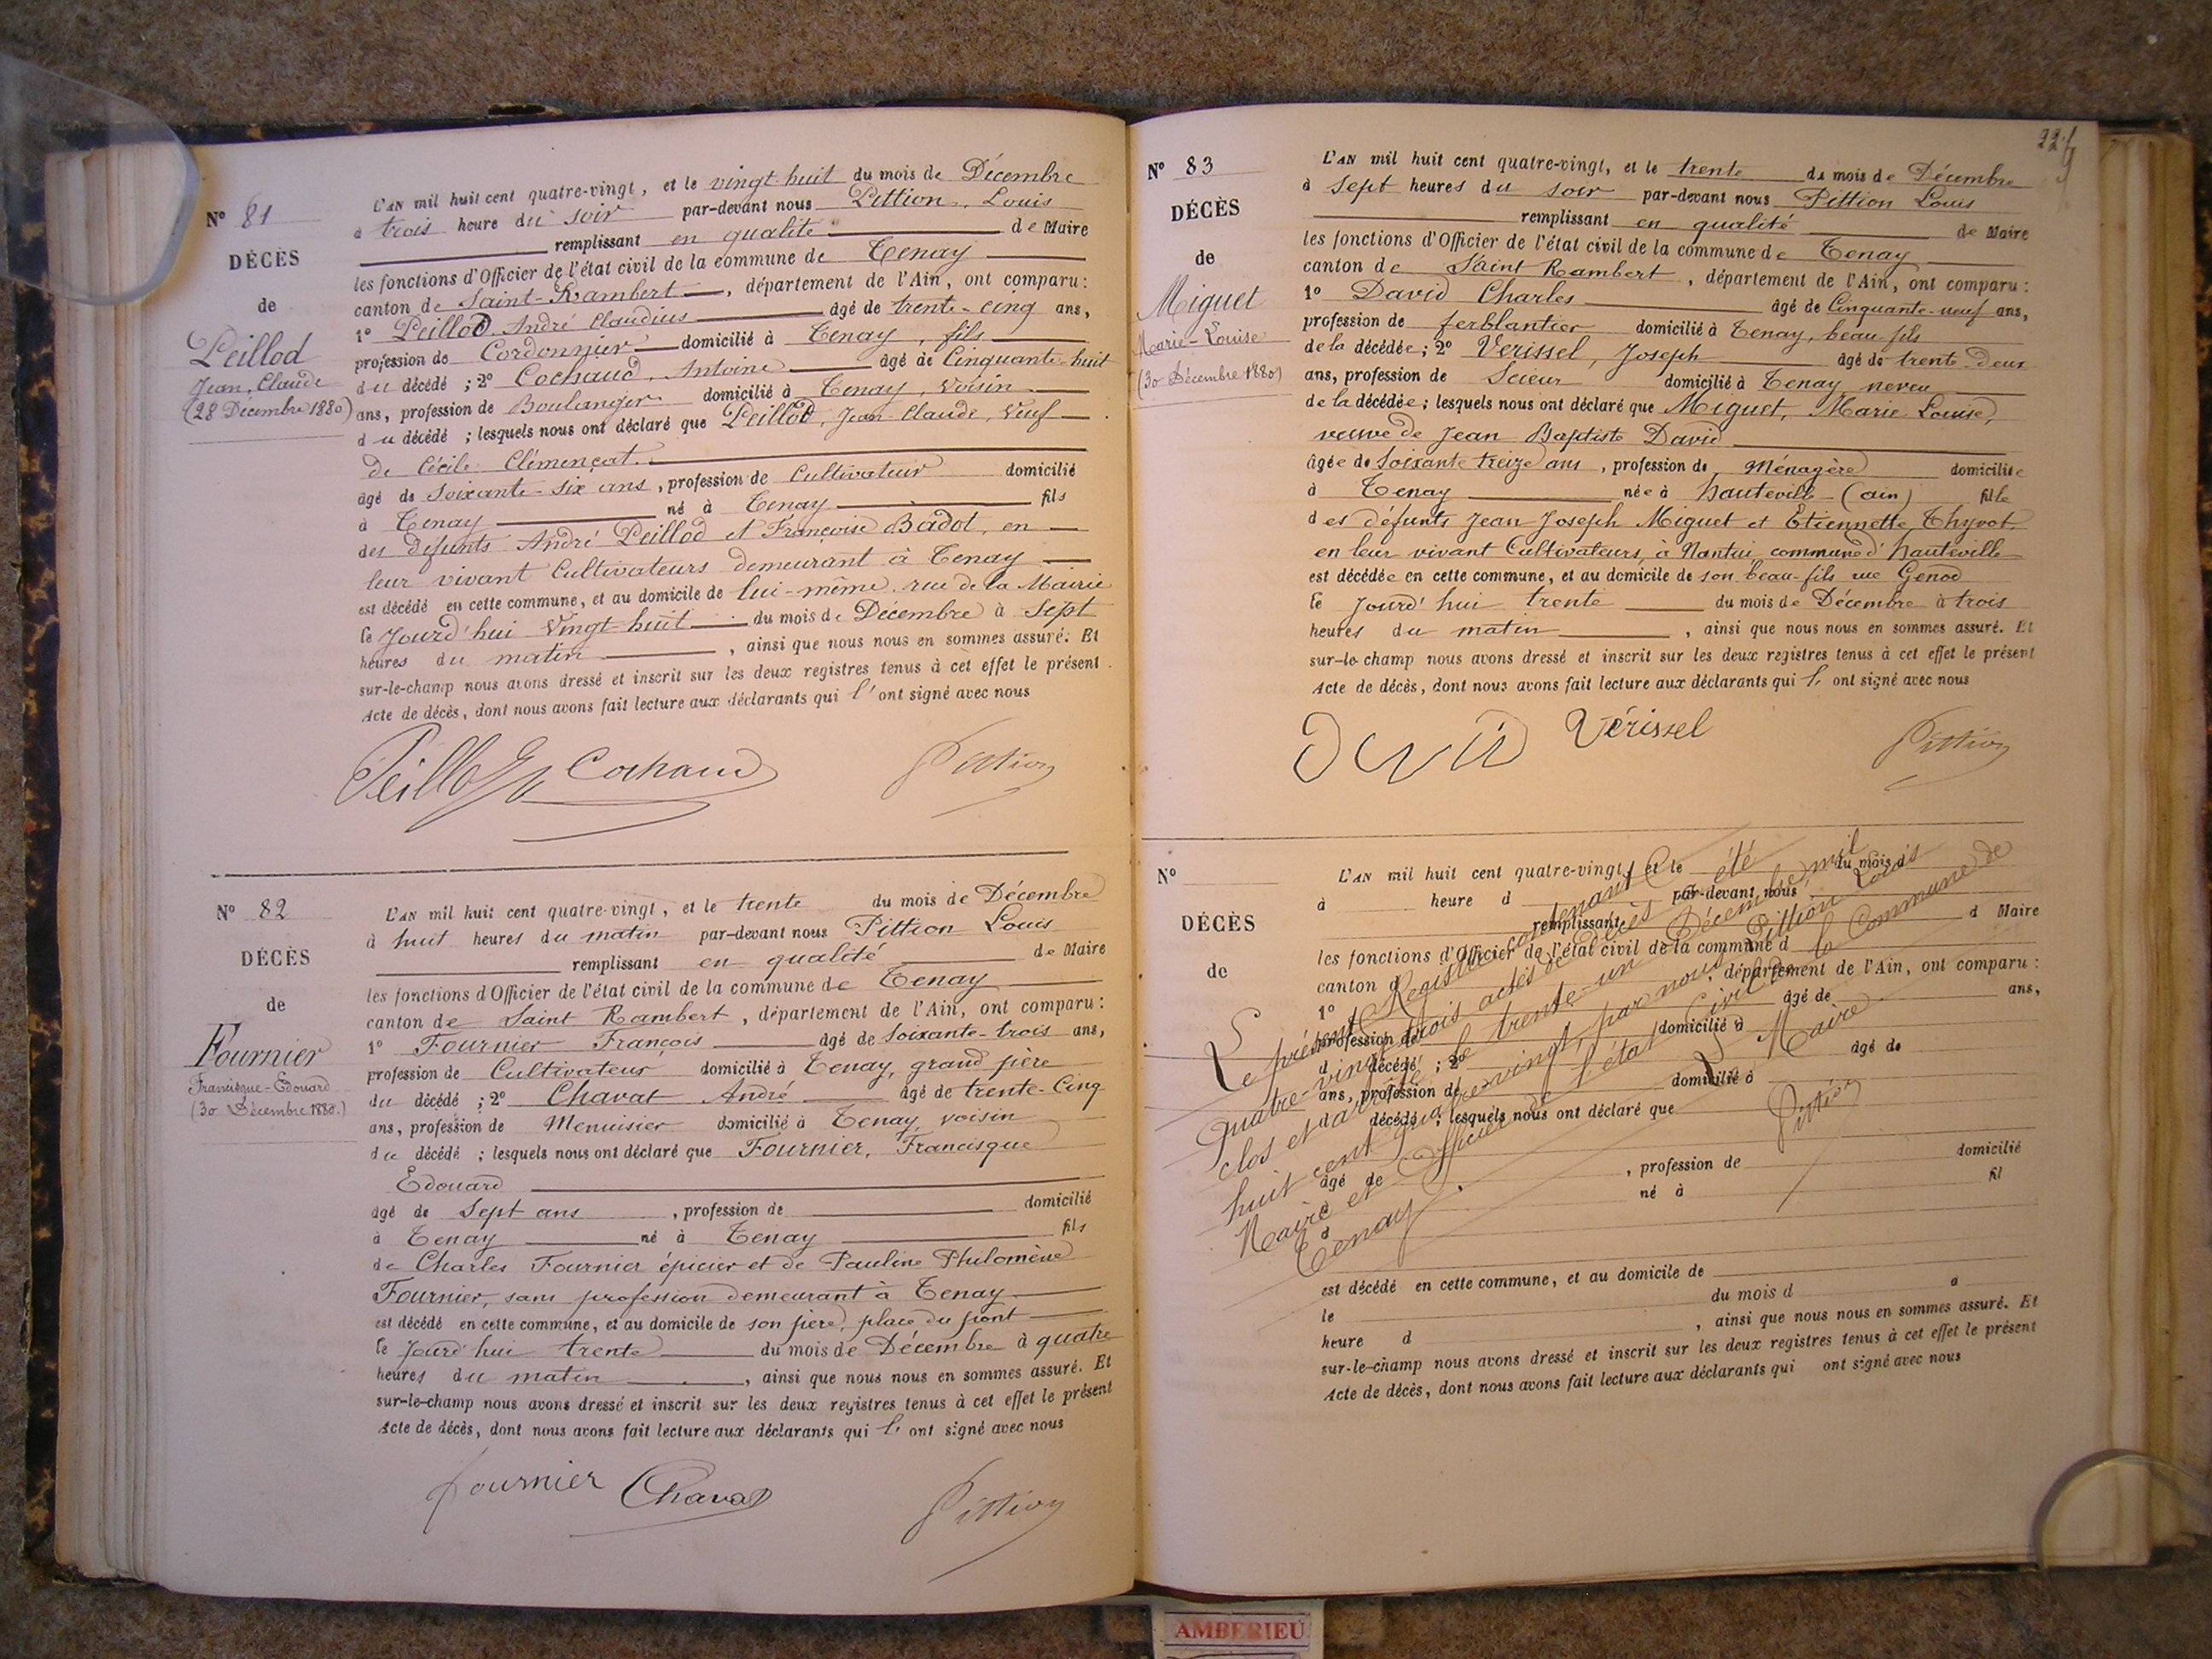 N° 81
DÉCÈS
de
Peillod
Jean, Claude
(28 Décembre 1880)
L'AN mil huit cent quatre-vingt, et le vingt-huit du mois de Décembre
à trois heure du soir par-devant nous Pittion, Louis
remplissant en qualité de Maire
les fonctions d'Officier de l'état civil de la commune de Tenay
canton de Saint-Rambert, département de l'Ain, ont comparu:
1° Peillod, André Claudius âgé de trente-cinq ans,
profession de Cordonnier domicilié à Tenay, fils
du décédé ; 2° Cochaud, Antoine âgé de Cinquante-huit
ans, profession de Boulanger domicilié à Tenay, voisin
du décédé ; lesquels nous ont déclaré que Peillod, Jean Claude, Veuf
de Cécile Clémençat.
âgé de Soixante-six ans, profession de Cultivateur domicilié
à Tenay né à Tenay fils
des défunts André Peillod et Françoise Badot, en
leur vivant Cultivateurs demeurant à Tenay
est décédé en cette commune, et au domicile de lui-même rue de la Mairie
le Jourd'hui Vingt huit du mois de Décembre à Sept
heures du matin, ainsi que nous nous en sommes assuré. Et
sur-le-champ nous avons dressé et inscrit sur les deux registres tenus à cet effet le présent
Acte de décès, dont nous avons fait lecture aux déclarants qui l'ont signé avec nous
Peillod Cochaud Pittion
N° 82
DÉCÈS
de
Fournier
Francisque-Edouard
(30 Décembre 1880.)
L'AN mil huit cent quatre-vingt, et le trente du mois de Décembre
à huit heures du matin par-devant nous Pittion Louis
remplissant en qualité de Maire
les fonctions d'Officier de l'état civil de la commune de Tenay
canton de Saint Rambert, département de l'Ain, ont comparu:
1° Fournier François âgé de Soixante-trois ans,
profession de Cultivateur domicilié à Tenay, grand père
du décédé ; 2° Chavat André âgé de trente-Cinq
ans, profession de Menuisier domicilié à Tenay, voisin
du décédé ; lesquels nous ont déclaré que Fournier, Francisque
Edouard
âgé de Sept ans, profession de domicilié
à Tenay né à Tenay fils
de Charles Fournier épicier et de Pauline Philomène
Fournier, sans profession demeurant à Tenay
est décédé en cette commune, et au domicile de son père, place du pont
le Jourd'hui trente du mois de Décembre à quatre
heures du matin, ainsi que nous nous en sommes assuré. Et
sur-le-champ nous avons dressé et inscrit sur les deux registres tenus à cet effet le présent
Acte de décès, dont nous avons fait lecture aux déclarants qui l'ont signé avec nous
Fournier Chavat Pittion
N° 83
DÉCÈS
de
Miguet
Marie-Louise
(30 Décembre 1880)
L'AN mil huit cent quatre-vingt, et le trente du mois de Décembre
à Sept heures du soir par-devant nous Pittion Louis
remplissant en qualité de Maire
les fonctions d'Officier de l'état civil de la commune de Tenay
canton de Saint Rambert, département de l'Ain, ont comparu:
1° David Charles âgé de Cinquante-neuf ans,
profession de ferblantier domicilié à Tenay, beau-fils
de la décédée ; 2° Verissel, Joseph âgé de trente-deux
ans, profession de Scieur domicilié à Tenay neveu
de la décédée ; lesquels nous ont déclaré que Miguet, Marie Louise,
veuve de Jean Baptiste David
âgée de Soixante treize ans, profession de Ménagère domiciliée
à Tenay née à Hauteville (ain) fille
des défunts Jean Joseph Miguet et Etiennette Thyvot
en leur vivant Cultivateurs, à Nantui commune d'hauteville
est décédée en cette commune, et au domicile de son beau-fils rue Genod
le Jourd'hui trente du mois de Décembre à trois
heures du matin, ainsi que nous nous en sommes assuré. Et
sur-le-champ nous avons dressé et inscrit sur les deux registres tenus à cet effet le présent
Acte de décès, dont nous avons fait lecture aux déclarants qui l'ont signé avec nous
David Vérissel Pittion
N°
DÉCÈS
de
L'AN mil huit cent quatre-vingt, et le du mois d
à heure d par-devant nous
remplissant d Maire
les fonctions d'Officier de l'état civil de la commune d
canton d, département de l'Ain, ont comparu:
1° âgé de ans,
profession de domicilié à
d décédé ; 2° âgé de
ans, profession de domicilié à
décédé ; lesquels nous ont déclaré que
âgé de, profession de domicilié
à né à fil
d
est décédé en cette commune, et au domicile de
le du mois d à
heure d, ainsi que nous nous en sommes assuré. Et
sur-le-champ nous avons dressé et inscrit sur les deux registres tenus à cet effet le présent
Acte de décès, dont nous avons fait lecture aux déclarants qui ont signé avec nous
Le présent Registre contenant
quatre-vingt-trois actes de Décès a été
clos et arrêté le trente-un Décembre mil
huit cent quatre-vingt, par nous Pittion Louis
Maire et Officier de l'état Civil de la Commune de
Tenay.
Le Maire
Pittion
AMBERIEU